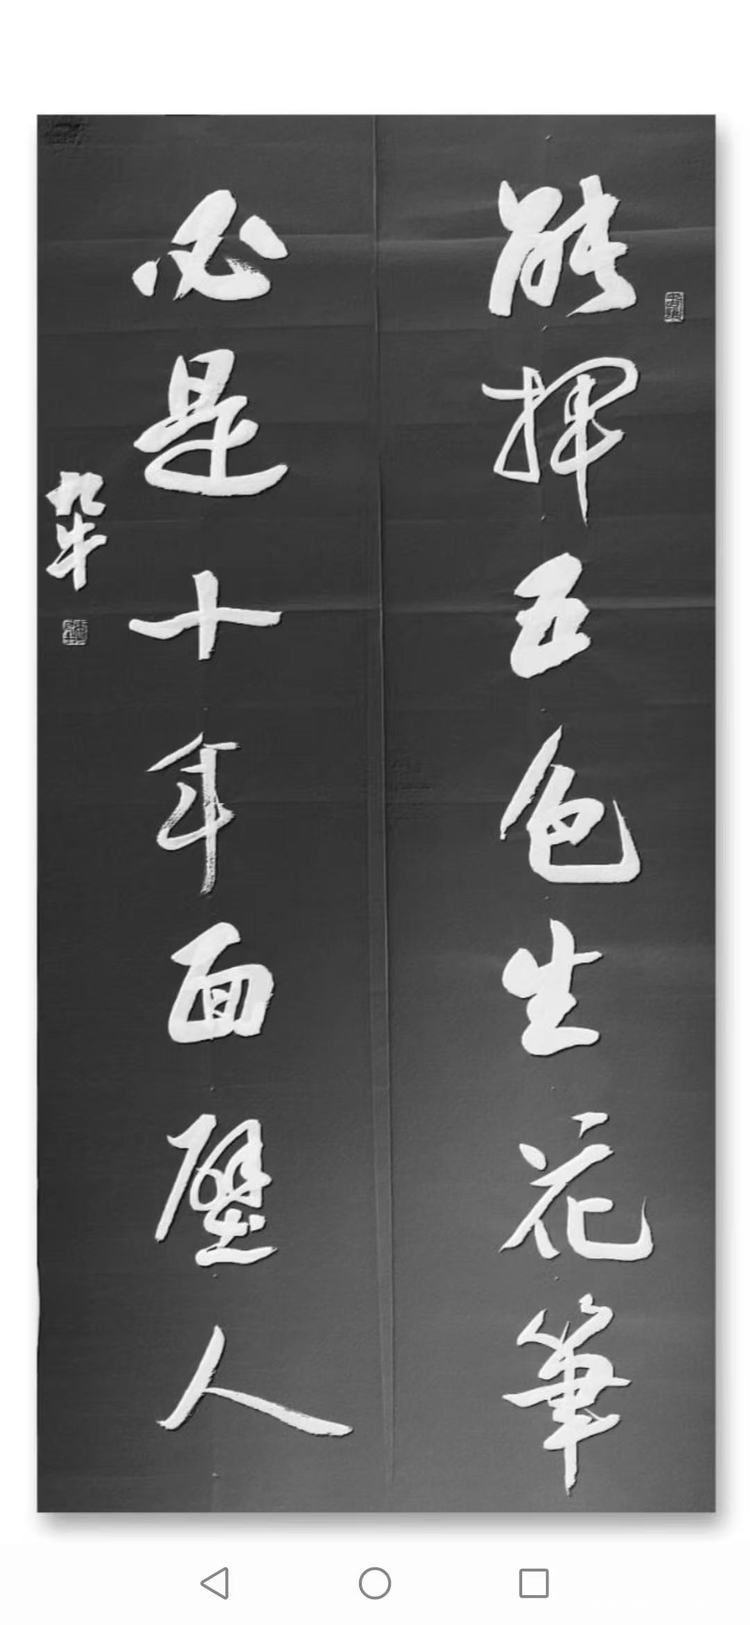 能揮五色生花筆
必是十年面壁人
九牛